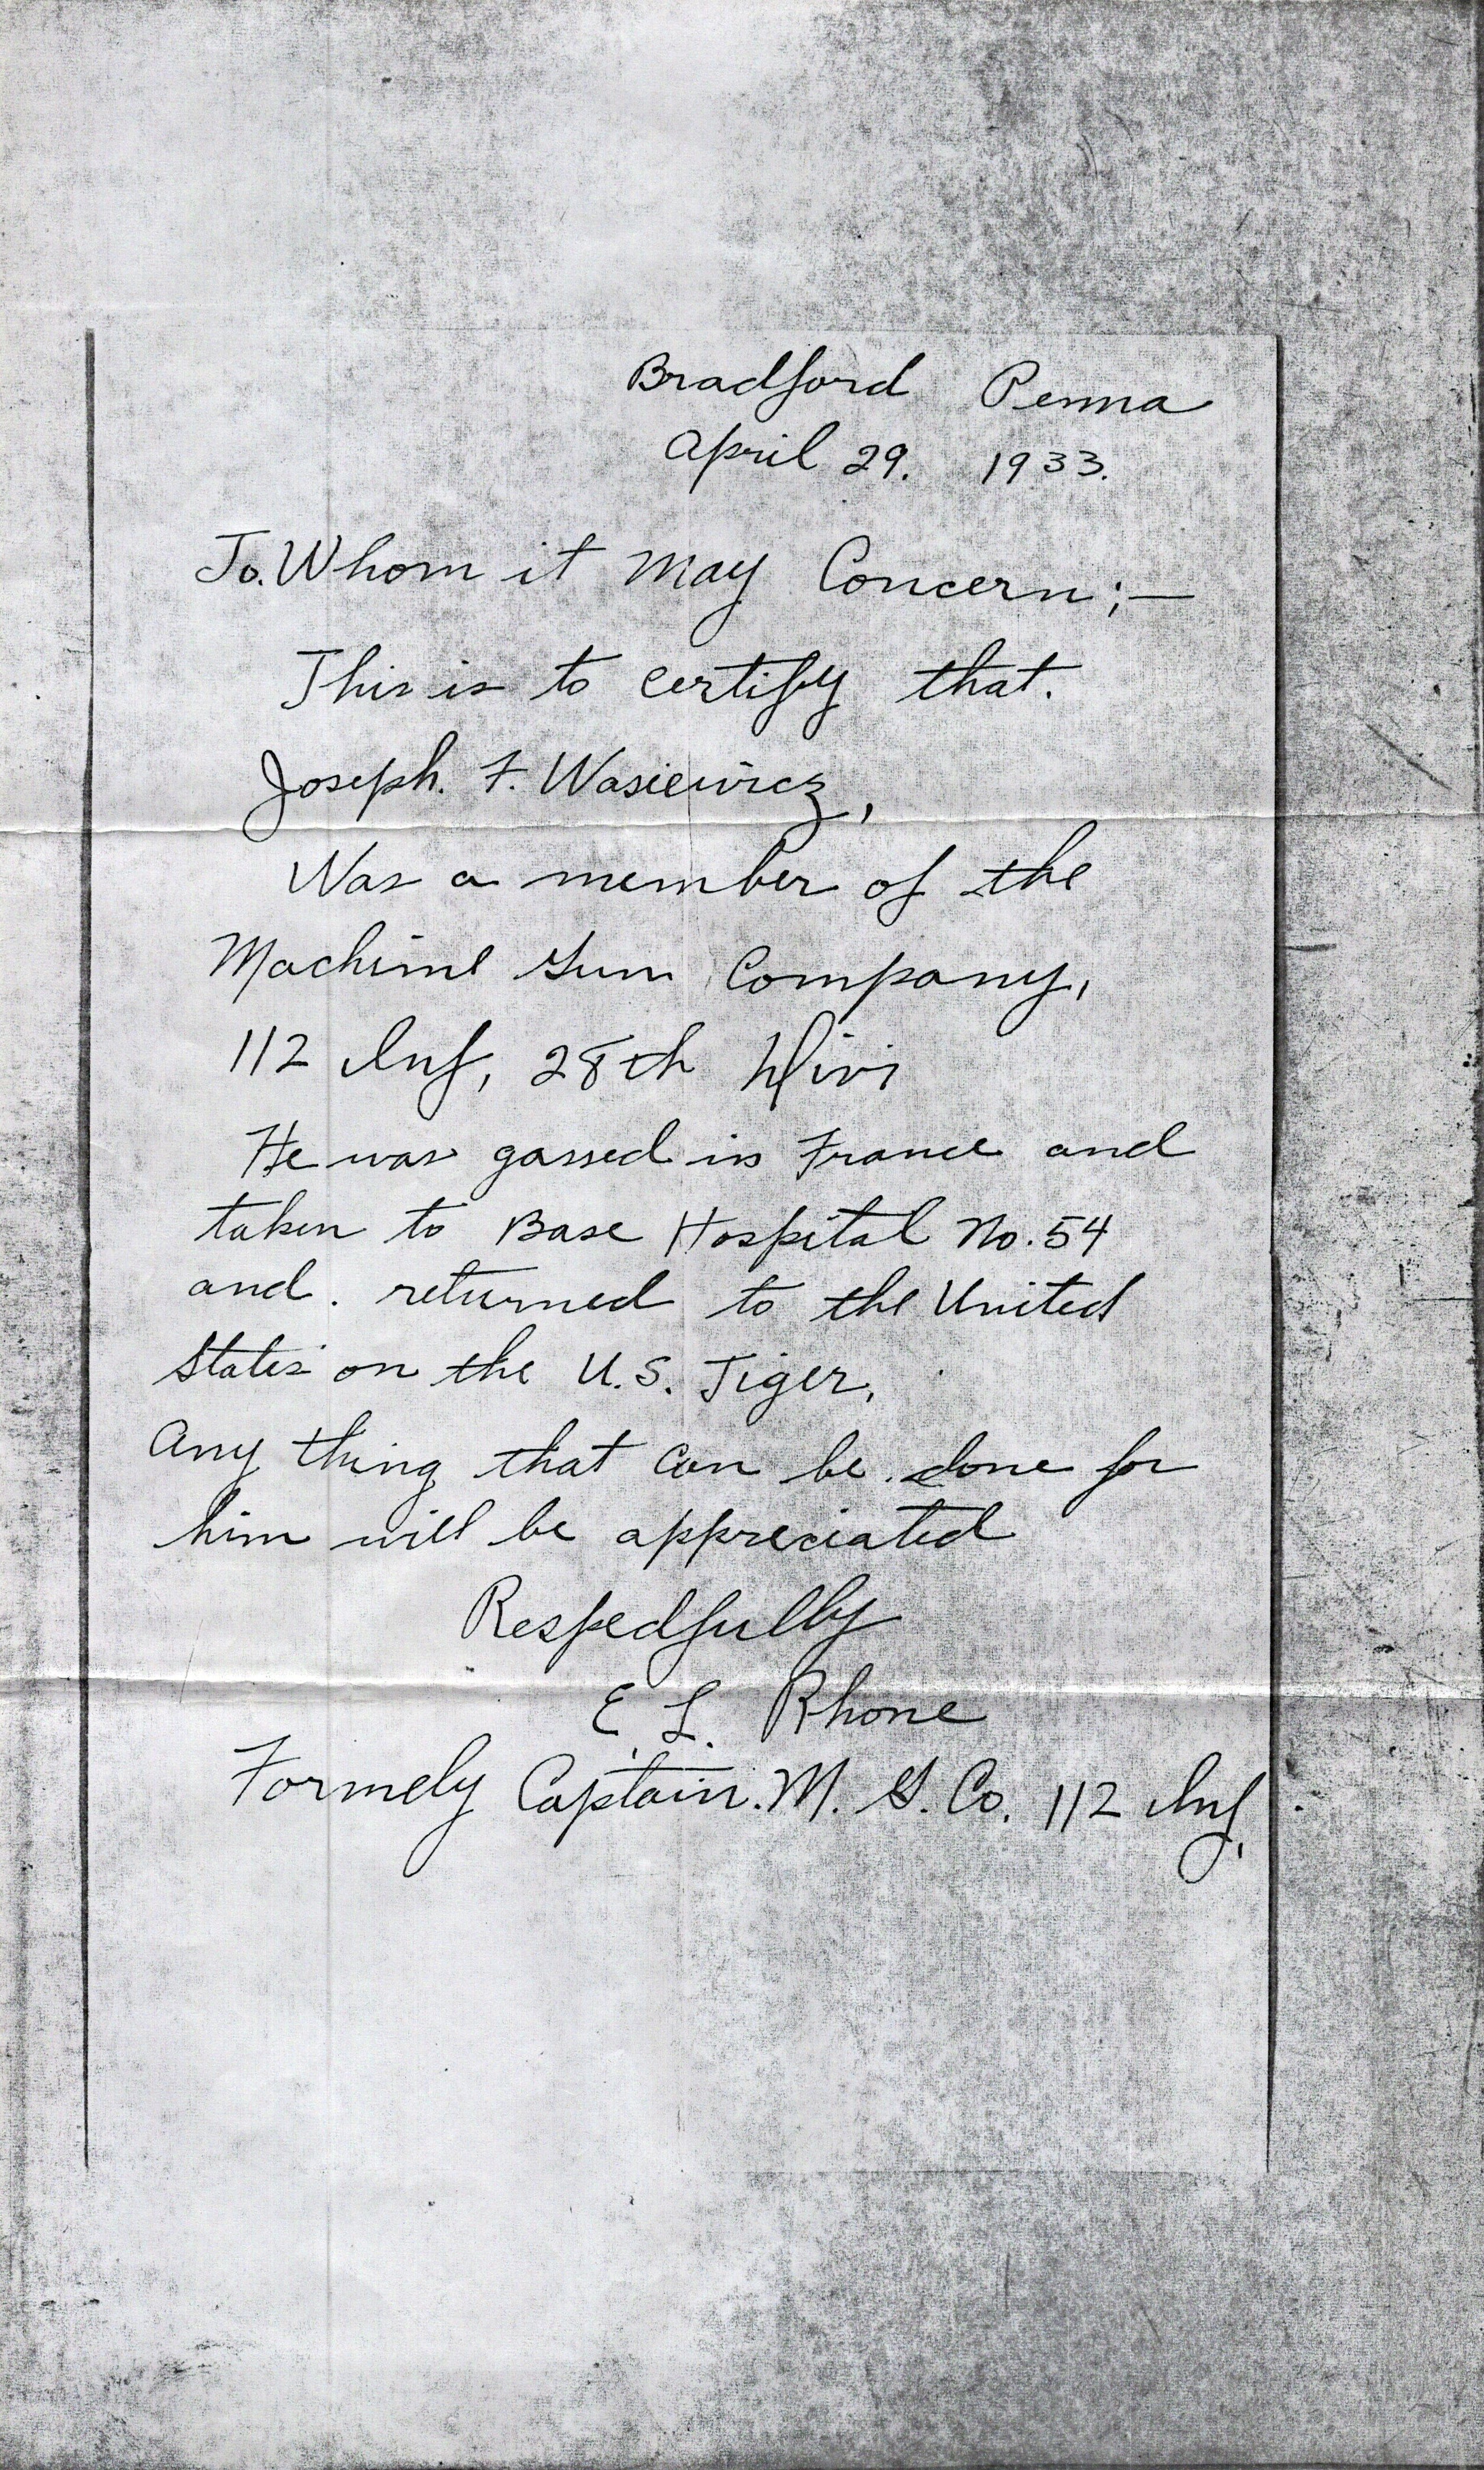 Bradford Penna
April 29. 1933.
To. Whom it May Concern;—
This is to certify that.
Joseph. F. Wasiewicz,
Was a member of the
Machine Gun Company,
112 Inf, 28th Divi
He was gassed in France and
taken to Base Hospital No. 54
and. returned to the United
States on the U.S. Tiger,
Any thing that can be. done for
him will be appreciated
Respectfully
E. L. Rhone
Formely Captain. M. G. Co. 112 Inf,